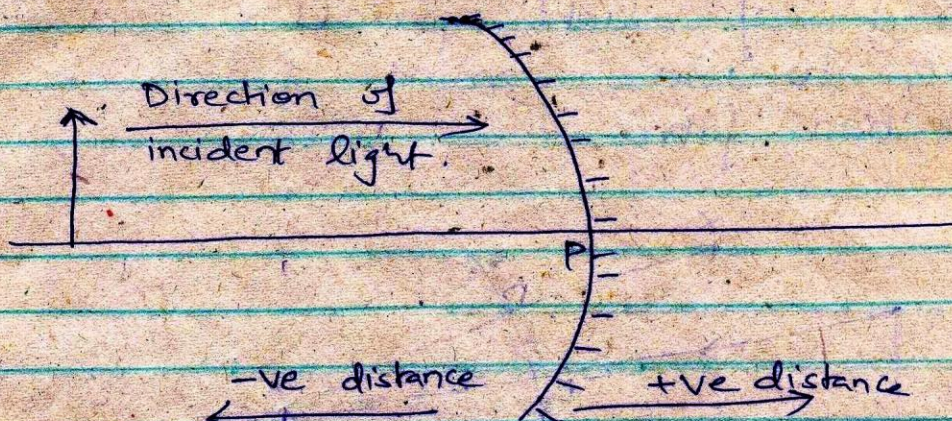 Direction of
incident light.
P
-ve distance
+ve distance